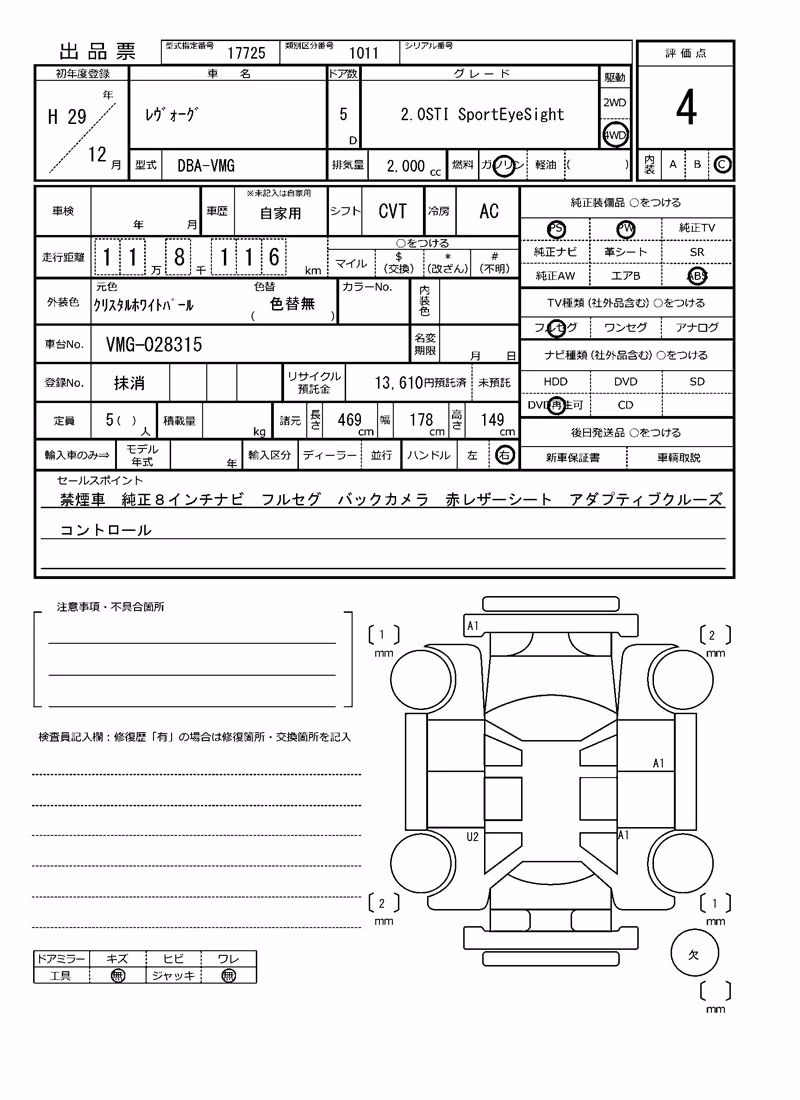 出品票
型式指定番号 17725 類別区分番号 1011 シリアル番号
評価点
4
初年度登録 車 名 ドア数 グレード 駆動
H 29 年
12 月
ﾚｳﾞｫｰｸﾞ
5 D
2.0STI SportEyeSight
2WD
4WD
型式 DBA-VMG 排気量 2,000 cc 燃料 ガソリン 軽油 ( )
内装 A B C
車検 年 月 車歴 ※未記入は自家用 自家用 シフト CVT 冷房 AC
走行距離 1 1 万 8 千 1 1 6 km
○をつける
マイル $(交換) *(改ざん) #(不明)
外装色 元色 ｸﾘｽﾀﾙﾎﾜｲﾄﾊﾟｰﾙ 色替 ( 色替無 ) カラーNo. 内装色
車台No. VMG-028315 名変期限 月 日
登録No. 抹消 リサイクル預託金 13,610円預託済 未預託
定員 5( ) 人 積載量 kg 諸元 長さ 469 cm 幅 178 cm 高さ 149 cm
輸入車のみ⇒ モデル年式 年 輸入区分 ディーラー 並行 ハンドル 左 右
純正装備品 ○をつける
PS PW 純正TV
純正ナビ 革シート SR
純正AW エアB ABS
TV種類(社外品含む)○をつける
フルセグ ワンセグ アナログ
ナビ種類(社外品含む)○をつける
HDD DVD SD
DVD再生可 CD
後日発送品 ○をつける
新車保証書 車輌取説
セールスポイント
禁煙車 純正８インチナビ フルセグ バックカメラ 赤レザーシート アダプティブクルーズ
コントロール
注意事項・不具合箇所
検査員記入欄：修復歴「有」の場合は修復箇所・交換箇所を記入
ドアミラー キズ ヒビ ワレ
工具 無 ジャッキ 無
A1
[ 1 ] mm
[ 2 ] mm
A1
U2
A1
[ 2 ] mm
[ 1 ] mm
欠
[ ] mm